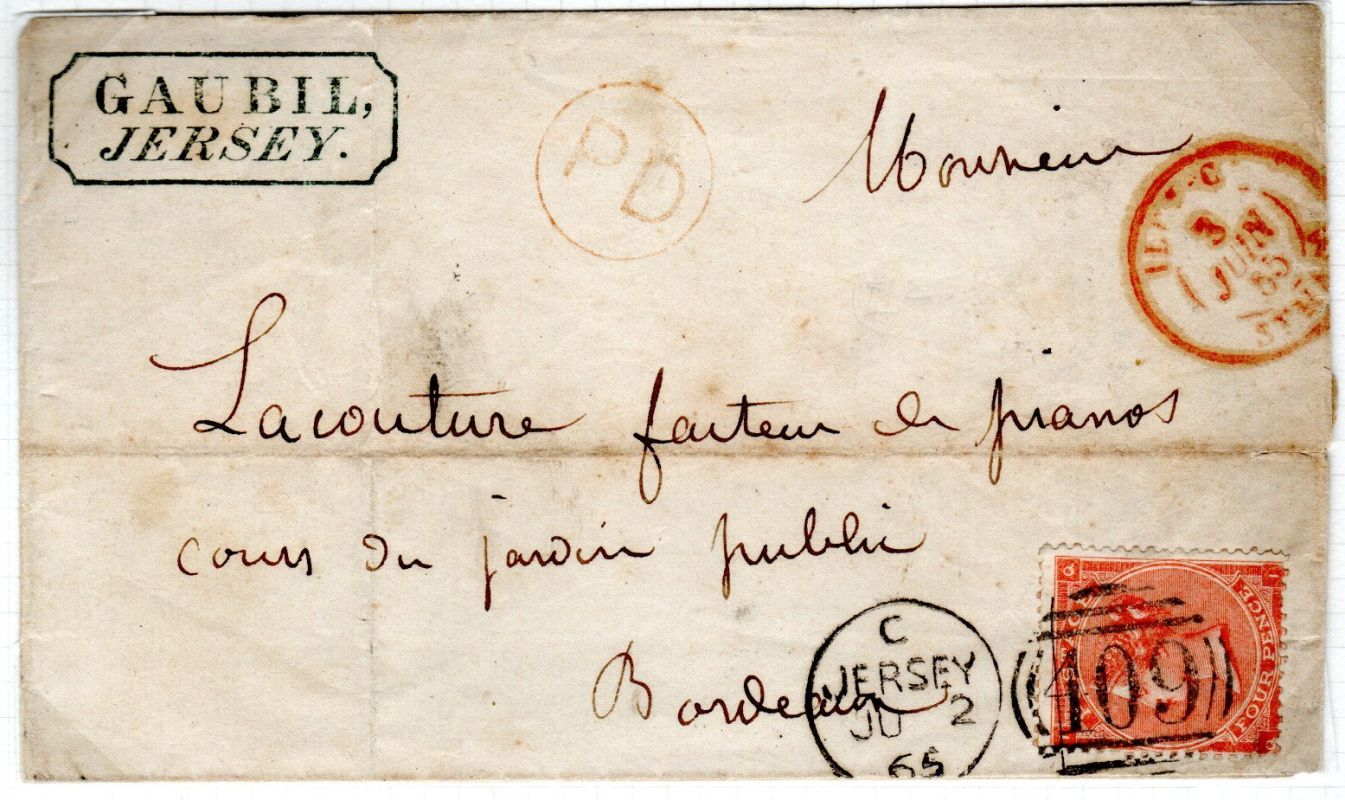 GAUBIL,
JERSEY.
PD
Monsieur
3
JUIN
65
Lacouture facteur de pianos
cours du jardin public
Bordeaux
C
JERSEY
JU 2
65
409
POSTAGE
FOUR PENCE